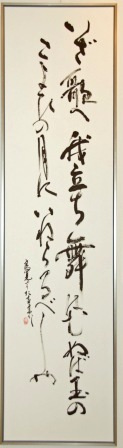 いざ歌へ我立ち舞はむぬば玉の
こよひの月にいねらるべしや